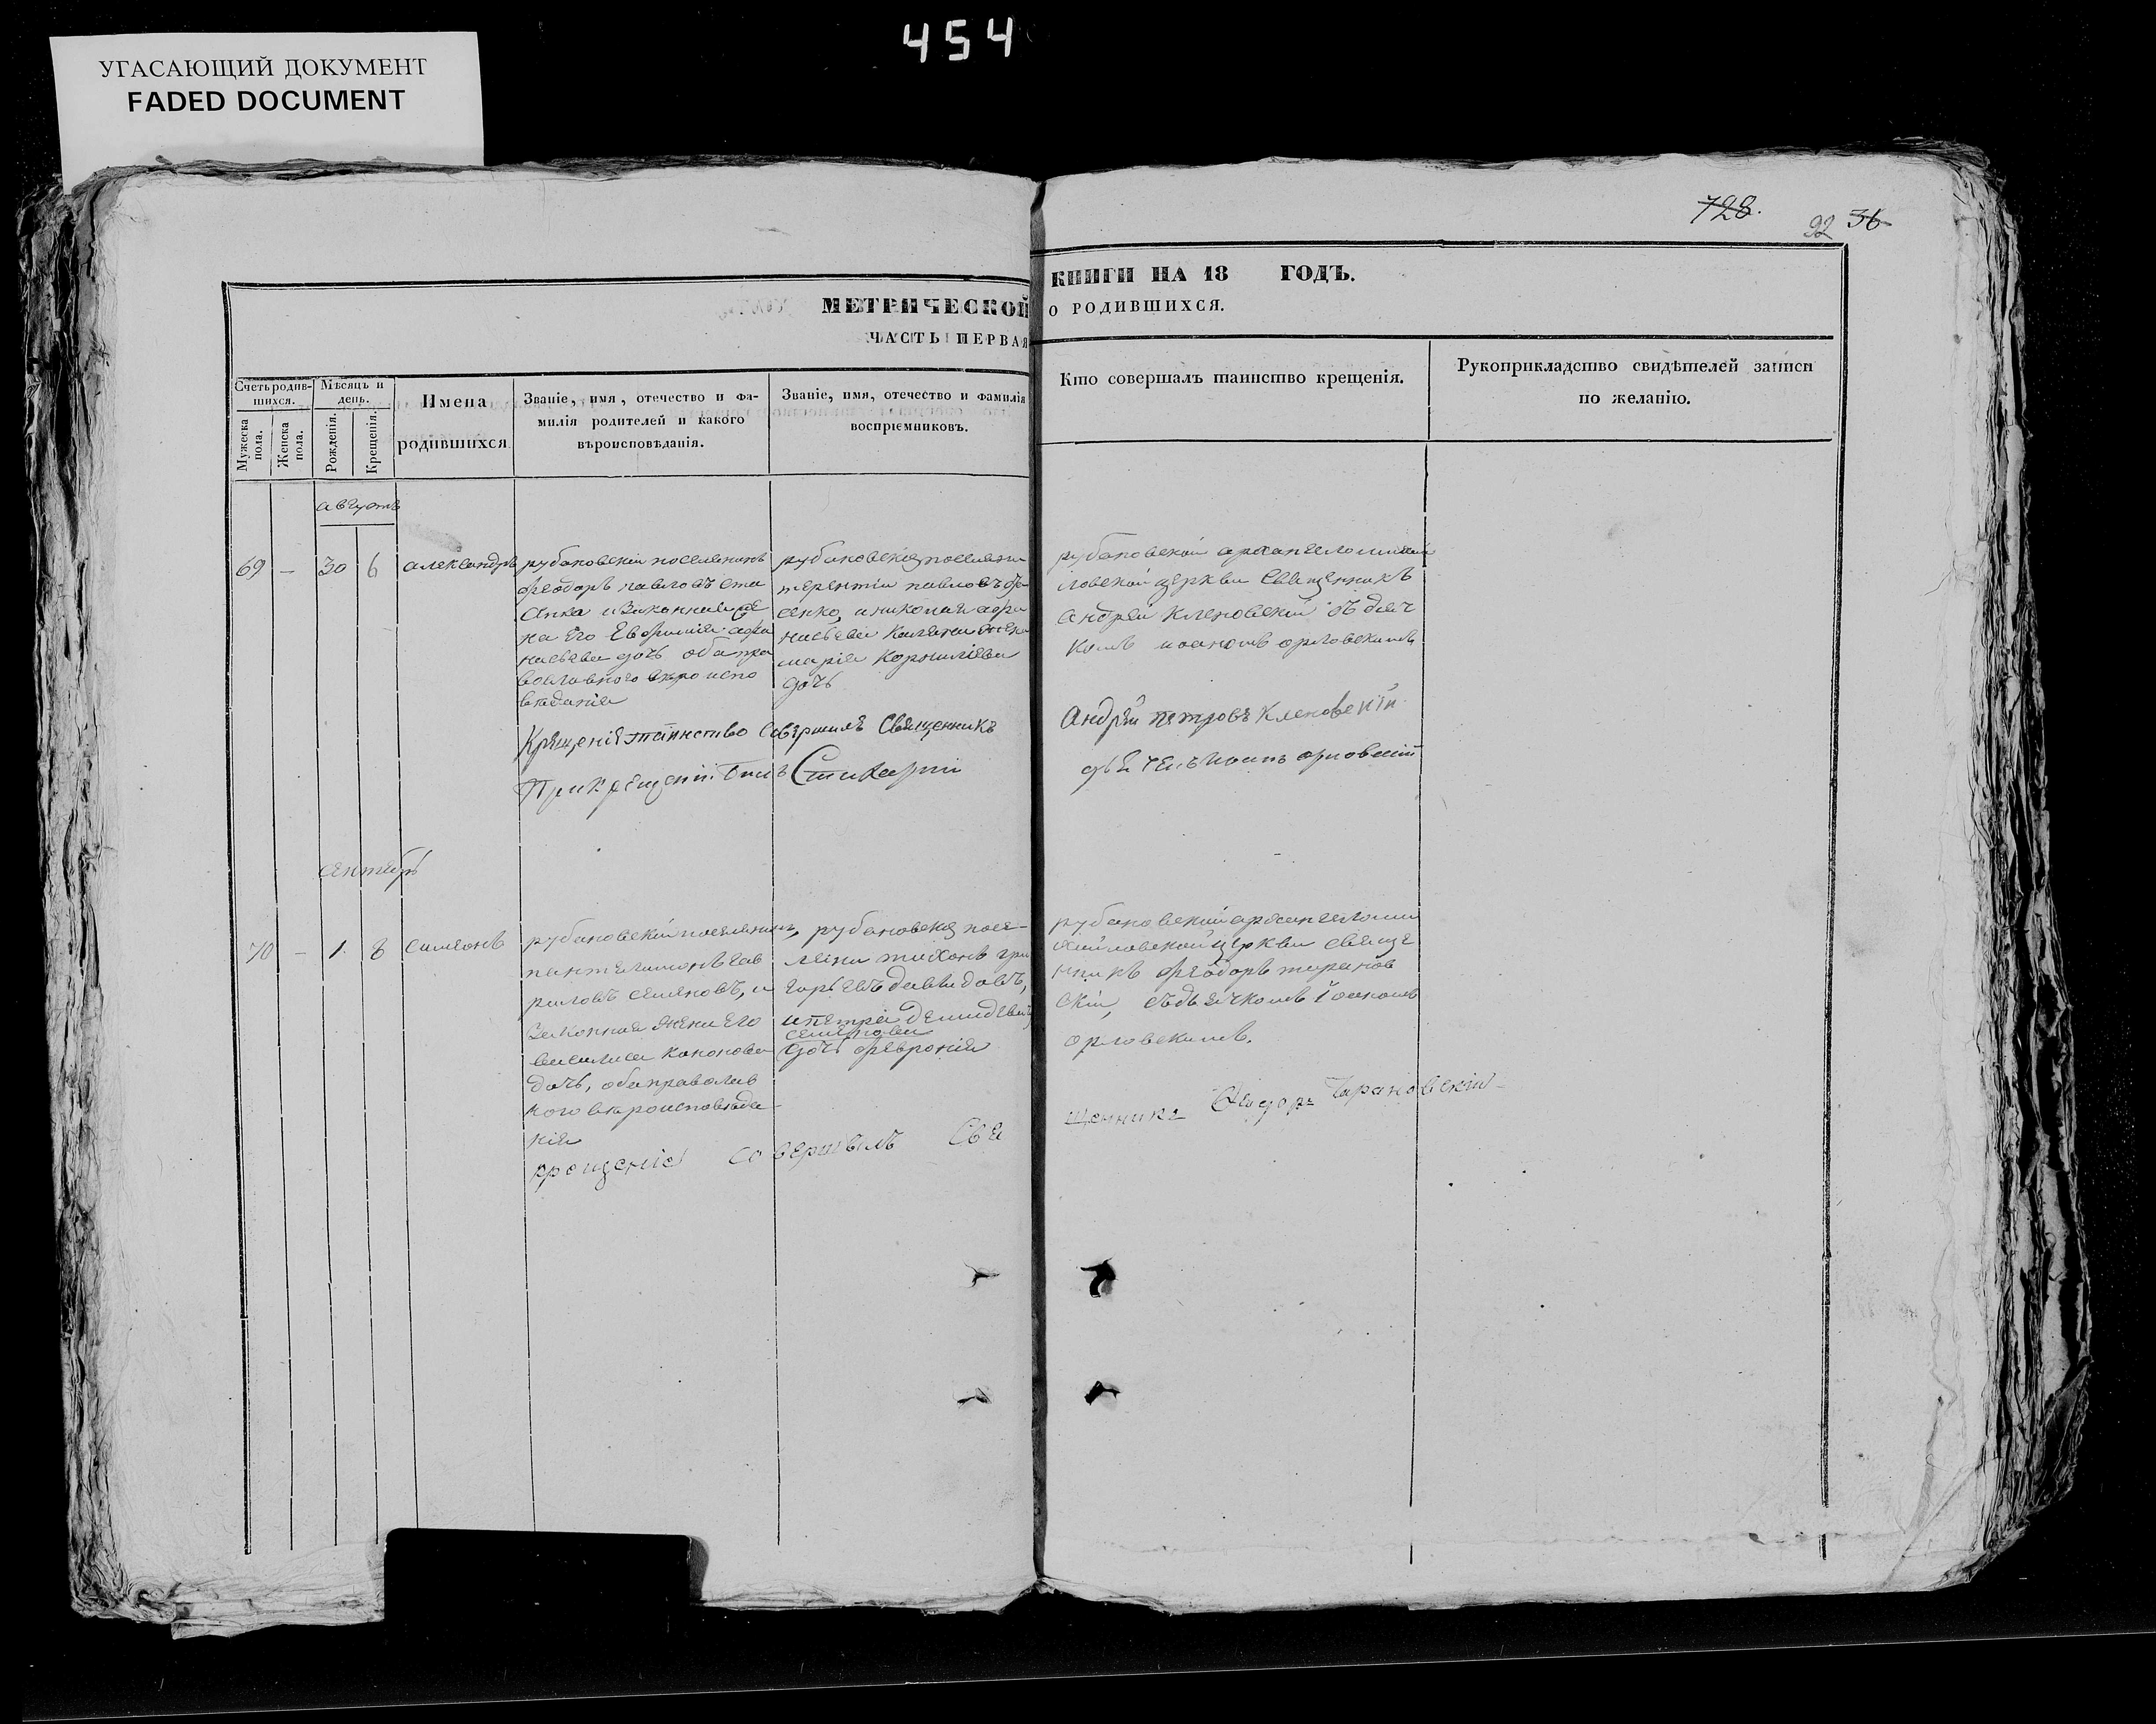 454
УГАСАЮЩИЙ ДОКУМЕНТ
FADED DOCUMENT
728.
92 36
МЕТРИЧЕСКОЙ
ЧАСТЬ ПЕРВАЯ
КНИГИ НА 18 ГОДЪ.
О РОДИВШИХСЯ.
Счетъ родив-
шихся.
Мужеска
пола.
Женска
пола.
Мѣсяцъ и
день.
Рожденія.
Крещенія.
Имена
родившихся
Званіе, имя, отечество и фа-
милія родителей и какого
вѣроисповѣданія.
Званіе, имя, отечество и фамилія
воспріемниковъ.
Кто совершалъ таинство крещенія.
Рукоприкладство свидѣтелей записи
по желанію.
августъ
69 — 30 6 александръ
рубановскій поселянинъ
феодоръ павловъ ста
на его Евфимія афа
насьева дочь оба пра
вославного вѣроиспо
вѣданія
рубановскія поселяни
терентій павловъ
сенко, и николая афа
насьева жена
марія Корнилиева
дочь
рубановской архангеломиха
ловской церкви Священникъ
андрей Кленовскій съ дяч
комъ иоаномъ орловскимъ
Крещенія таинство Совершилъ Священникъ
Андрей петровъ Кленовскій
При крещеніи былъ
дьячекъ Иоанъ орловскій
сентябрь
70 — 1. 8 симеонъ
рубановскій поселянинъ,
пантелимонъ гав
риловъ семеновъ, и
законная жена его
василиса кононова
дочь, оба православ
ного вѣроисповѣда-
нія
рубановскія посе-
ляни тихонъ гри
горьевъ давидовъ,
и петра
семенова
дочь феврония
рубановской архангеломи
хайловской церкви свяще
нникъ феодоръ тарановъ
скій, съ дьячкомъ Іоаномъ
орловскимъ.
крещеніе совершилъ Свя
щенникъ Феодоръ Тарановскій